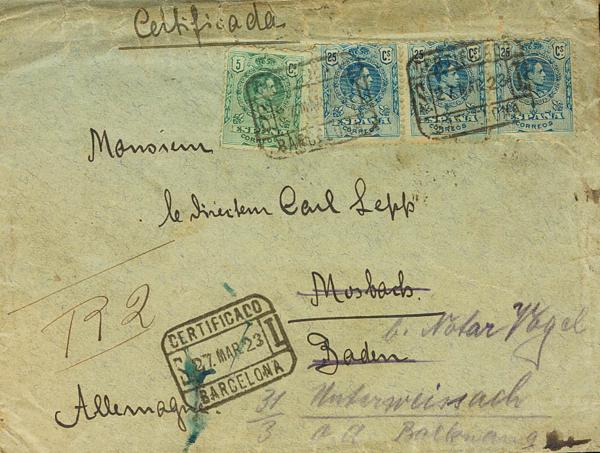 Certificada
5 Cs 25 Cs 25 Cs 25 Cs
ESPAÑA ESPAÑA ESPAÑA ESPAÑA
CORREOS CORREOS CORREOS CORREOS
27 MAR 23
Monsieur
le directeur Carl Sepp
R 2
Mosbach.
b. Notar Vogel
Baden
CERTIFICADO
27.MAR.23
1
BARCELONA
Allemagne.
31/3
Unterweissach
Backnang